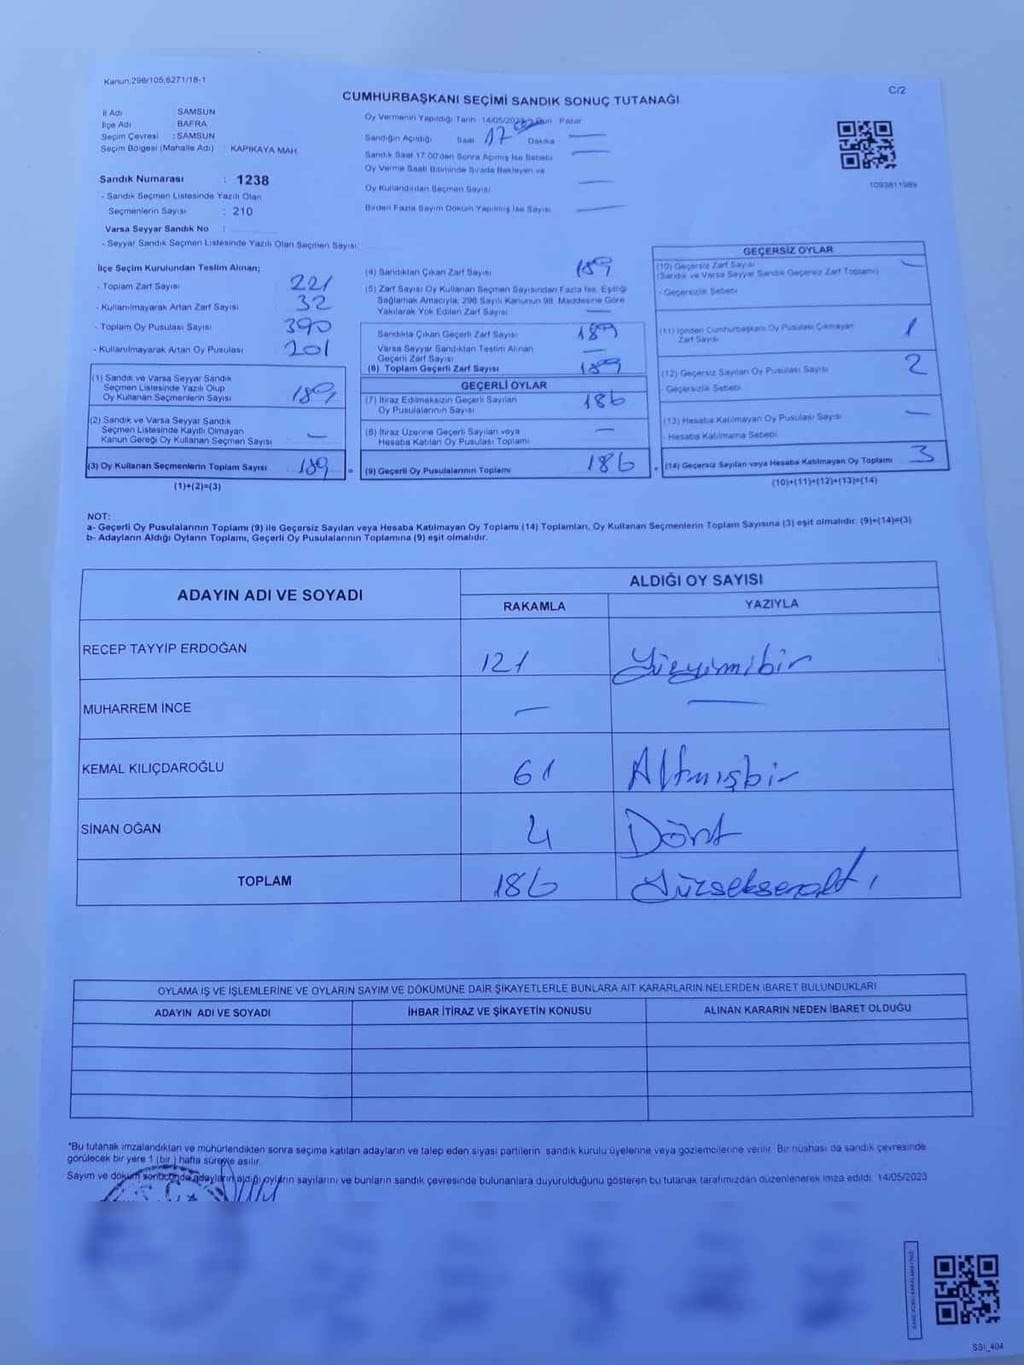 Kanun:298/105,6271/16-1
C/2
CUMHURBAŞKANI SEÇİMİ SANDIK SONUÇ TUTANAĞI
İl Adı : SAMSUN
İlçe Adı : BAFRA
Seçim Çevresi : SAMSUN
Seçim Bölgesi (Mahalle Adı) : KAPIKAYA MAH.
Sandık Numarası : 1238
- Sandık Seçmen Listesinde Yazılı Olan
Seçmenlerin Sayısı : 210
Varsa Seyyar Sandık No :
- Seyyar Sandık Seçmen Listesinde Yazılı Olan Seçmen Sayısı:
Oy Vermenin Yapıldığı Tarih 14/05/2023 Gün Pazar
Sandığın Açıldığı Saat 17 00 Dakika —
Sandık Saat 17.00'den Sonra Açılmış İse Sebebi —
Oy Verme Saati Bitiminde Sırada Bekleyen ve
Oy Kullandırılan Seçmen Sayısı —
Birden Fazla Sayım Döküm Yapılmış İse Sayısı —
1093811989
İlçe Seçim Kurulundan Teslim Alınan;
- Toplam Zarf Sayısı 221
- Kullanılmayarak Artan Zarf Sayısı 32
- Toplam Oy Pusulası Sayısı 390
- Kullanılmayarak Artan Oy Pusulası 201
(1) Sandık ve Varsa Seyyar Sandık
Seçmen Listesinde Yazılı Olup
Oy Kullanan Seçmenlerin Sayısı 189
(2) Sandık ve Varsa Seyyar Sandık
Seçmen Listesinde Kayıtlı Olmayan
Kanun Gereği Oy Kullanan Seçmen Sayısı —
(3) Oy Kullanan Seçmenlerin Toplam Sayısı 189
(1)+(2)=(3)
(4) Sandıktan Çıkan Zarf Sayısı 189
(5) Zarf Sayısı Oy Kullanan Seçmen Sayısından Fazla İse, Eşitliği
Sağlamak Amacıyla, 298 Sayılı Kanunun 98. Maddesine Göre
Yakılarak Yok Edilen Zarf Sayısı —
Sandıkta Çıkan Geçerli Zarf Sayısı 189
Varsa Seyyar Sandıktan Teslim Alınan
Geçerli Zarf Sayısı —
(6) Toplam Geçerli Zarf Sayısı 189
GEÇERLİ OYLAR
(7) İtiraz Edilmeksizin Geçerli Sayılan
Oy Pusulalarının Sayısı 186
(8) İtiraz Üzerine Geçerli Sayılan veya
Hesaba Katılan Oy Pusulası Toplamı —
= (9) Geçerli Oy Pusulalarının Toplamı 186
GEÇERSİZ OYLAR
(10) Geçersiz Zarf Sayısı —
(Sandık ve Varsa Seyyar Sandık Geçersiz Zarf Toplamı)
- Geçersizlik Sebebi
(11) İçinden Cumhurbaşkanı Oy Pusulası Çıkmayan
Zarf Sayısı 1
(12) Geçersiz Sayılan Oy Pusulası Sayısı 2
- Geçersizlik Sebebi
(13) Hesaba Katılmayan Oy Pusulası Sayısı —
- Hesaba Katılmama Sebebi
+ (14) Geçersiz Sayılan veya Hesaba Katılmayan Oy Toplamı 3
(10)+(11)+(12)+(13)=(14)
NOT:
a- Geçerli Oy Pusulalarının Toplamı (9) ile Geçersiz Sayılan veya Hesaba Katılmayan Oy Toplamı (14) Toplamları, Oy Kullanan Seçmenlerin Toplam Sayısına (3) eşit olmalıdır. (9)+(14)=(3)
b- Adayların Aldığı Oyların Toplamı, Geçerli Oy Pusulalarının Toplamına (9) eşit olmalıdır.
ADAYIN ADI VE SOYADI
ALDIĞI OY SAYISI
RAKAMLA YAZIYLA
RECEP TAYYİP ERDOĞAN 121 Yüzyirmibir
MUHARREM İNCE — —
KEMAL KILIÇDAROĞLU 61 Altmışbir
SİNAN OĞAN 4 Dört
TOPLAM 186 Yüzseksenaltı
OYLAMA İŞ VE İŞLEMLERİNE VE OYLARIN SAYIM VE DÖKÜMÜNE DAİR ŞİKAYETLERLE BUNLARA AİT KARARLARIN NELERDEN İBARET BULUNDUKLARI
ADAYIN ADI VE SOYADI İHBAR İTİRAZ VE ŞİKAYETİN KONUSU ALINAN KARARIN NEDEN İBARET OLDUĞU
*Bu tutanak imzalandıktan ve mühürlendikten sonra seçime katılan adayların ve talep eden siyasi partilerin sandık kurulu üyelerine veya gözlemcilerine verilir. Bir nüshası da sandık çevresinde
görülecek bir yere 1 (bir) hafta süreyle asılır.
Sayım ve döküm sonucunda adayların aldığı oyların sayılarını ve bunların sandık çevresinde bulunanlara duyurulduğunu gösteren bu tutanak tarafımızdan düzenlenerek imza edildi. 14/05/2023
SSI_404